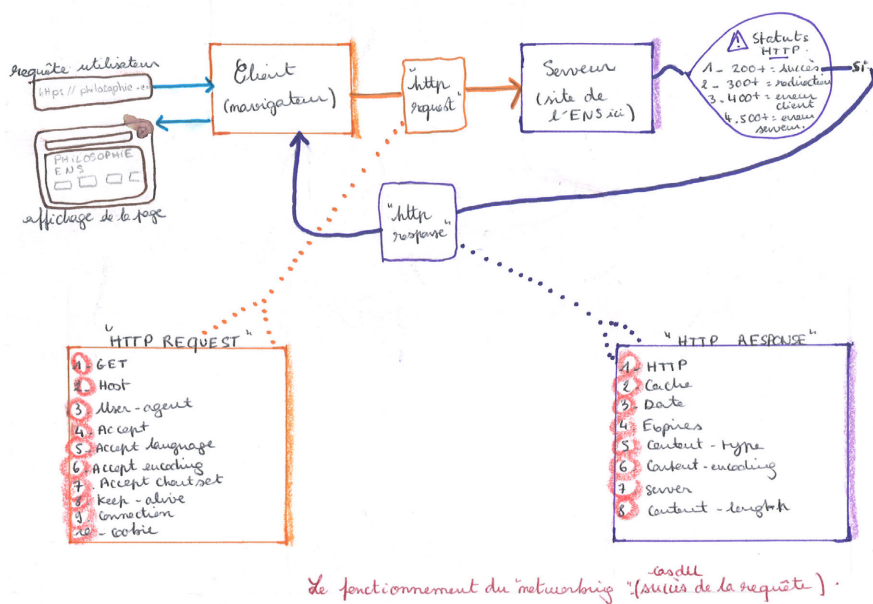 requête utilisateur
https://philosophie-en
PHILOSOPHIE
ENS
affichage de la page
Client
(navigateur)
"http
request"
Serveur
(site de
l'ENS ici)
Statuts
HTTP.
1_ 200+ = succès
2_ 300+ = redirection
3_ 400+ = erreur
client
4. 500+ = erreur
serveur.
Si
"http
response"
"HTTP REQUEST"
1_ GET
2_ Host
3_ User-agent
4_ Accept
5_ Accept language
6_ Accept encoding
7_ Accept charset
8_ Keep-alive
9_ Connection
10_ Cookie
"HTTP RESPONSE"
1_ HTTP
2_ Cache
3_ Date
4_ Expires
5_ Content-type
6_ Content-encoding
7_ Server
8_ Content-length
Le fonctionnement du "networking" (cas du succès de la requête).